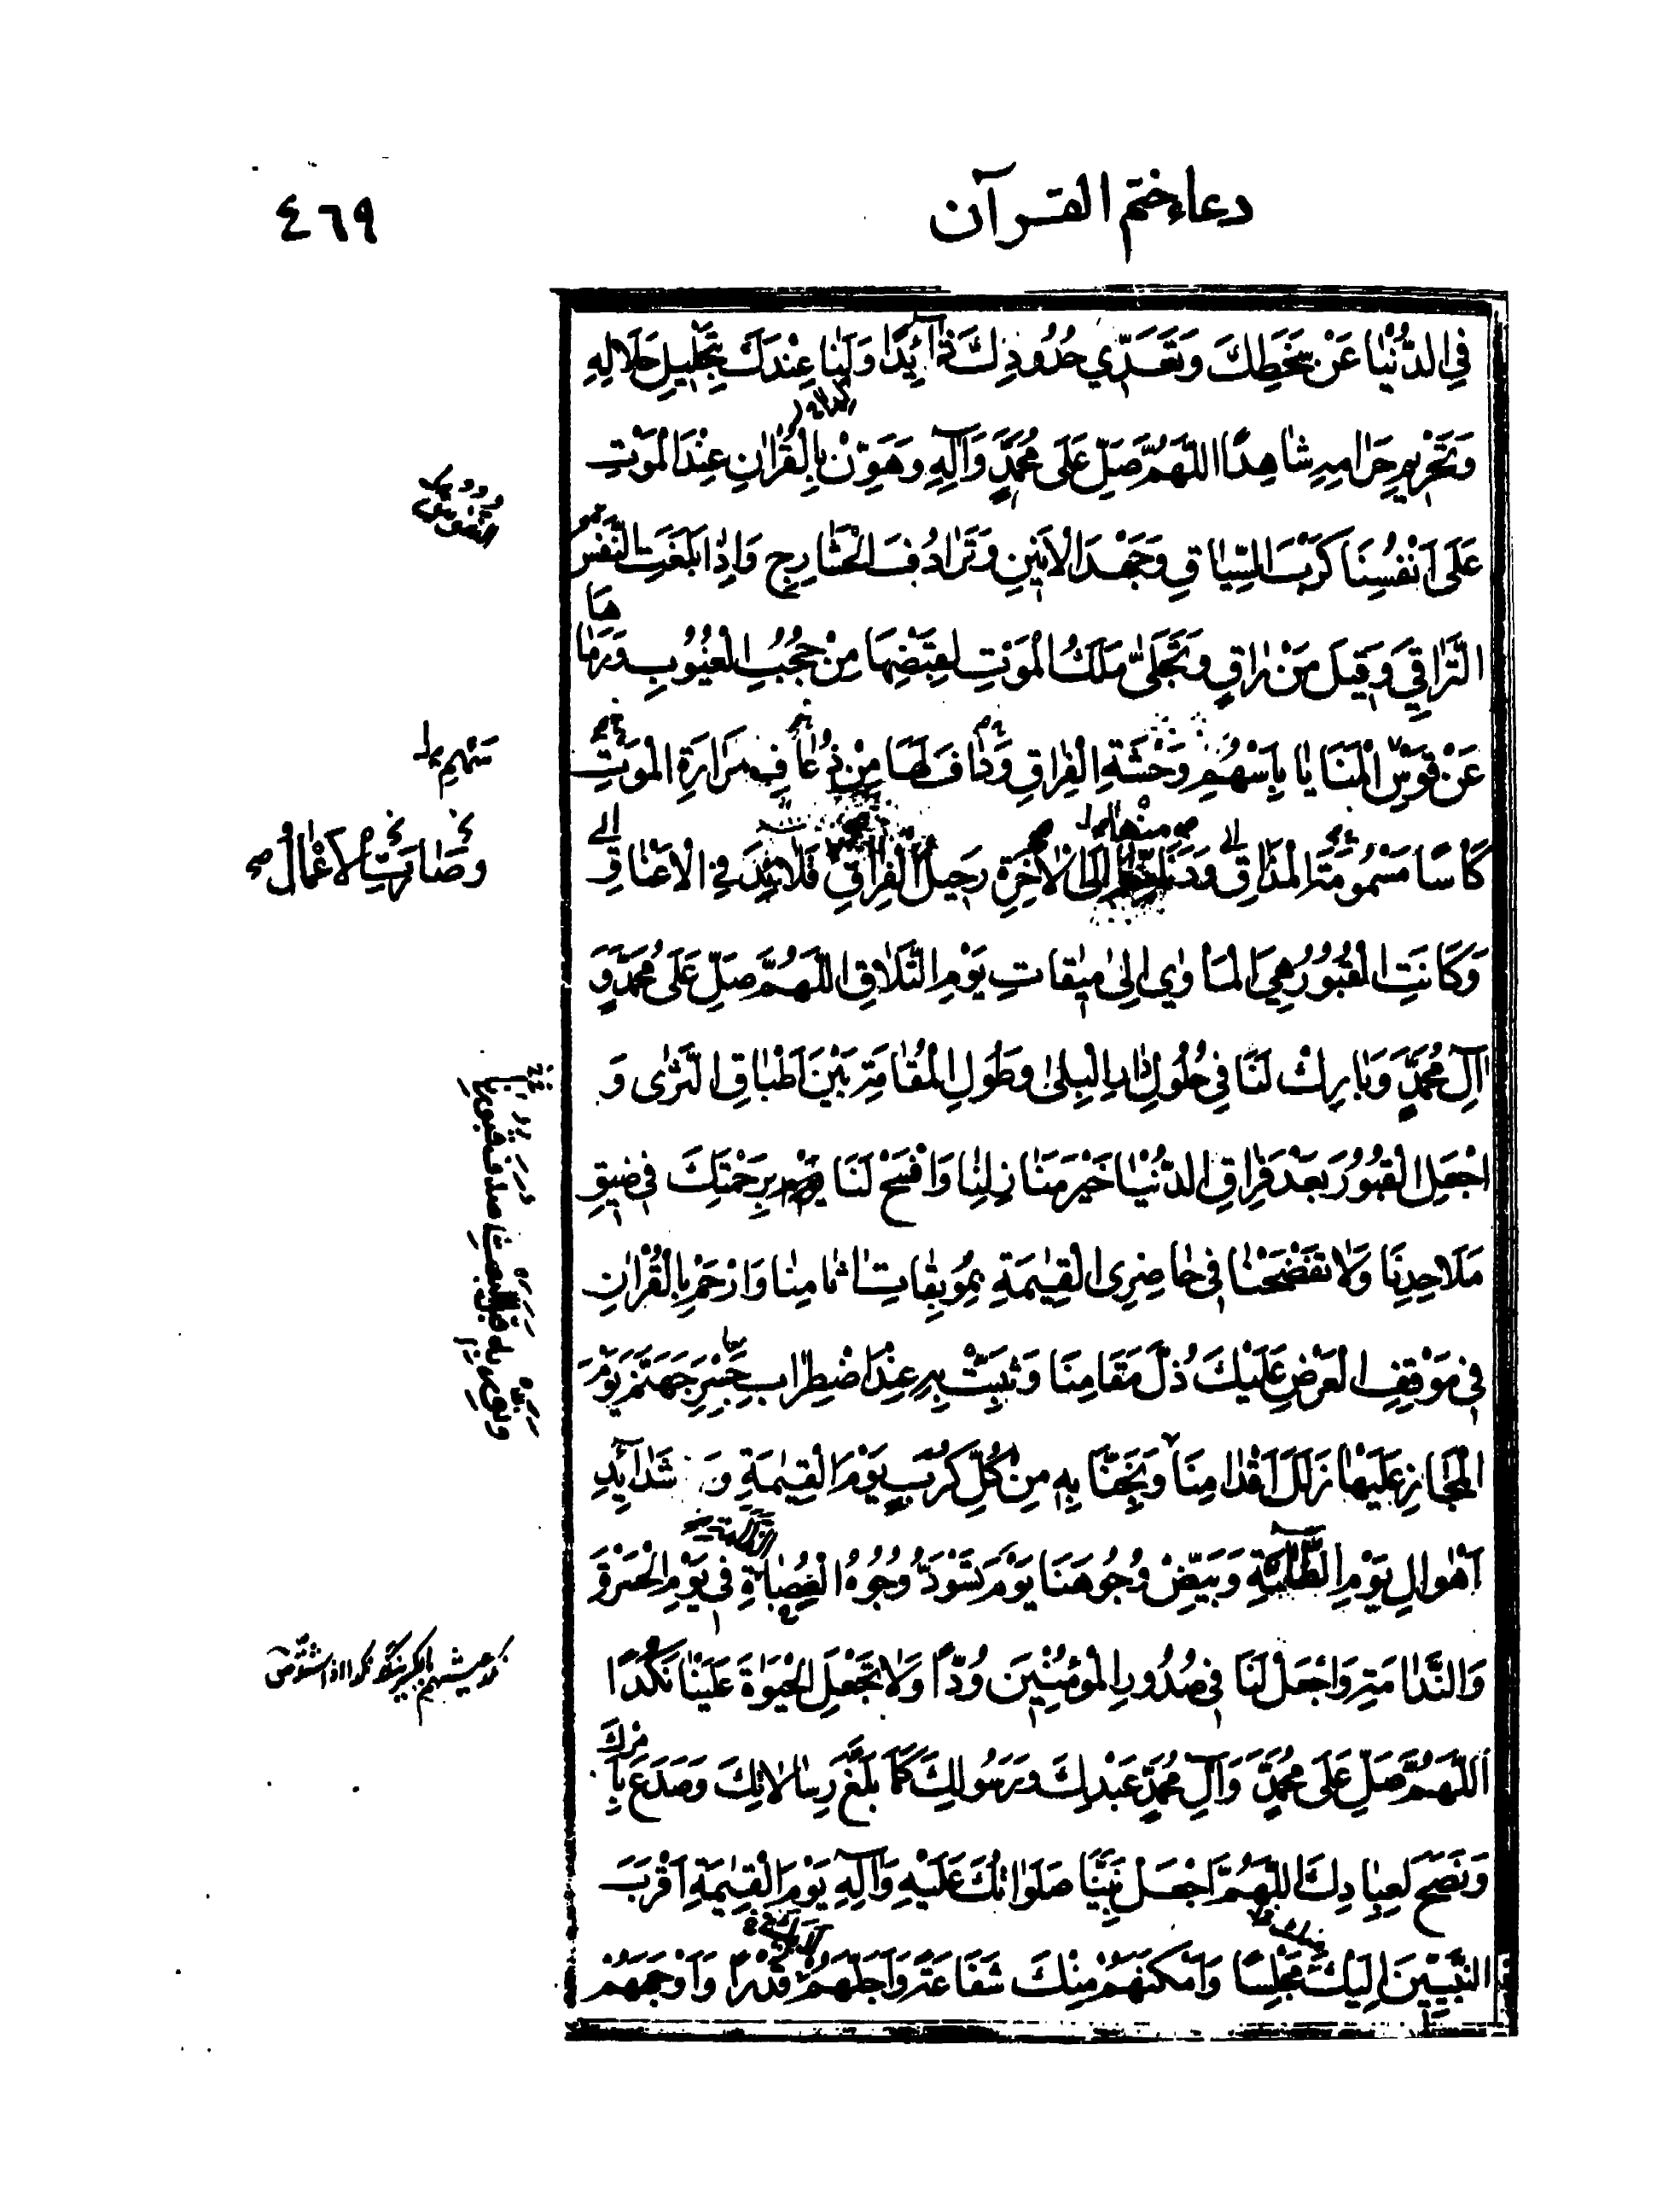 دعاء ختم القرآن
٤٦٩
فِي الدُّنْيٰا عَنْ سَخَطِكَ وَتَعَدّي حُدُودِكَ ذٰآئِدًا وَلَنٰا عِنْدَكَ بِتَحْليلِ حَلَالِهِ
وَتَحْريمِ حَرَامِهِ شَاهِدًا اللّهُمَّ صَلِّ عَلَى مُحَمَّدٍ وَآلِهِ وَهَوِّنْ بِالْقُرْاٰنِ عِنْدَ الْمَوْتِ
عَلَى اَنْفُسِنَا كَرْبَ السِّيٰاقِ وَجَهْدَ الْاَنينِ وَتَرٰادُفَ الْحَشَارِجِ وَاِذٰا بَلَغَتِ النَّفْسُ
التَّرٰاقِيَ وَقيلَ مَنْ رٰاقٍ وَتَجَلّىٰ مَلَكُ الْمَوْتِ لِقَبْضِهَا مِنْ حُجُبِ الْغُيُوبِ وَرَمٰاهَا
عَنْ قَوْسِ الْمَنَايٰا بِاَسْهُمِ وَحْشَةِ الْفِرٰاقِ وَدٰافَ لَهَا مِنْ ذُعٰافِ مَرَارَةِ الْمَوْتِ
كَأْسًا مَسْمُومَةَ الْمَذٰاقِ وَدَنَا مِنْهٰا اِلَى الْاٰخِرَةِ رَحِيلُ الْفِرٰاقِ قَلَائِدَ فِي الْاَعْنٰاقِ
وَصٰارَتِ الْاَعْمَالُ
وَكَانَتِ الْقُبُورُ هِيَ الْمَأْوٰى اِلىٰ ميقٰاتِ يَوْمِ التَّلَاقِ اللّهُمَّ صَلِّ عَلَى مُحَمَّدٍ وَ
آلِ مُحَمَّدٍ وَبَارِكْ لَنَا في حُلُولِ دٰارِ الْبِلىٰ وَطُولِ الْمُقٰامَةِ بَيْنَ اَطْبٰاقِ الثَّرٰى وَ
اجْعَلِ الْقُبُورَ بَعْدَ فِرٰاقِ الدُّنْيٰا خَيْرَ مَنَازِلِنٰا وَافْسَحْ لَنَا بِرَحْمَتِكَ في ضيقِ
مَلَاحِدِنَا وَلَا تَفْضَحْنٰا في حٰاضِرِى الْقِيٰمَةِ بِمُوبِقٰاتِ اٰثٰامِنٰا وَارْحَمْ بِالْقُرْاٰنِ
في مَوْقِفِ الْعَرْضِ عَلَيْكَ ذُلَّ مَقَامِنَا وَثَبِّتْ بِهِ عِنْدَ اضْطِرٰابِ جِسْرِ جَهَنَّمَ يَوْمَ
الْمَجَازِ عَلَيْهٰا زَلَلَ اَقْدٰامِنَا وَنَجِّنٰا بِهِ مِنْ كُلِّ كَرْبٍ يَوْمَ الْقِيٰمَةِ وَ شَدٰآئِدِ
اَهْوٰالِ يَوْمِ الطّٰامَّةِ وَبَيِّضْ وُجُوهَنَا يَوْمَ تَسْوَدُّ وُجُوهُ في يَوْمِ الْحَسْرَةِ
وَالنَّدٰامَةِ وَاجْعَلْ لَنَا في صُدُورِ الْمُؤْمِنينَ وُدًّا وَلَا تَجْعَلِ الْحَيٰوةَ عَلَيْنٰا نَكَدًا
اَللّهُمَّ صَلِّ عَلَى مُحَمَّدٍ وَآلِ مُحَمَّدٍ عَبْدِكَ وَرَسُولِكَ كَمَا بَلَّغَ رِسٰالَاتِكَ وَصَدَعَ بِاَمْرِكَ
وَنَصَحَ لِعِبٰادِكَ اللّهُمَّ اجْعَلْ نَبِيَّنَا صَلَوٰاتُكَ عَلَيْهِ وَآلِهِ يَوْمَ الْقِيٰمَةِ اَقْرَبَ
النَّبِيّينَ اِلَيْكَ مَجْلِسًا وَاَمْكَنَهُمْ مِنْكَ شَفَاعَةً وَاَجَلَّهُمْ قَدْرًا وَاَوْجَهَهُمْ